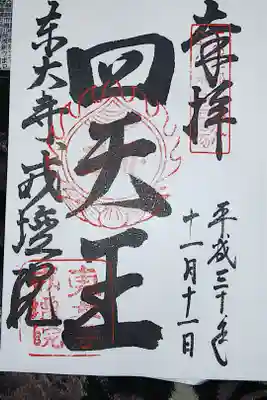 奉拝
平成三十年
十一月十一日
四天王
東大寺戒壇院